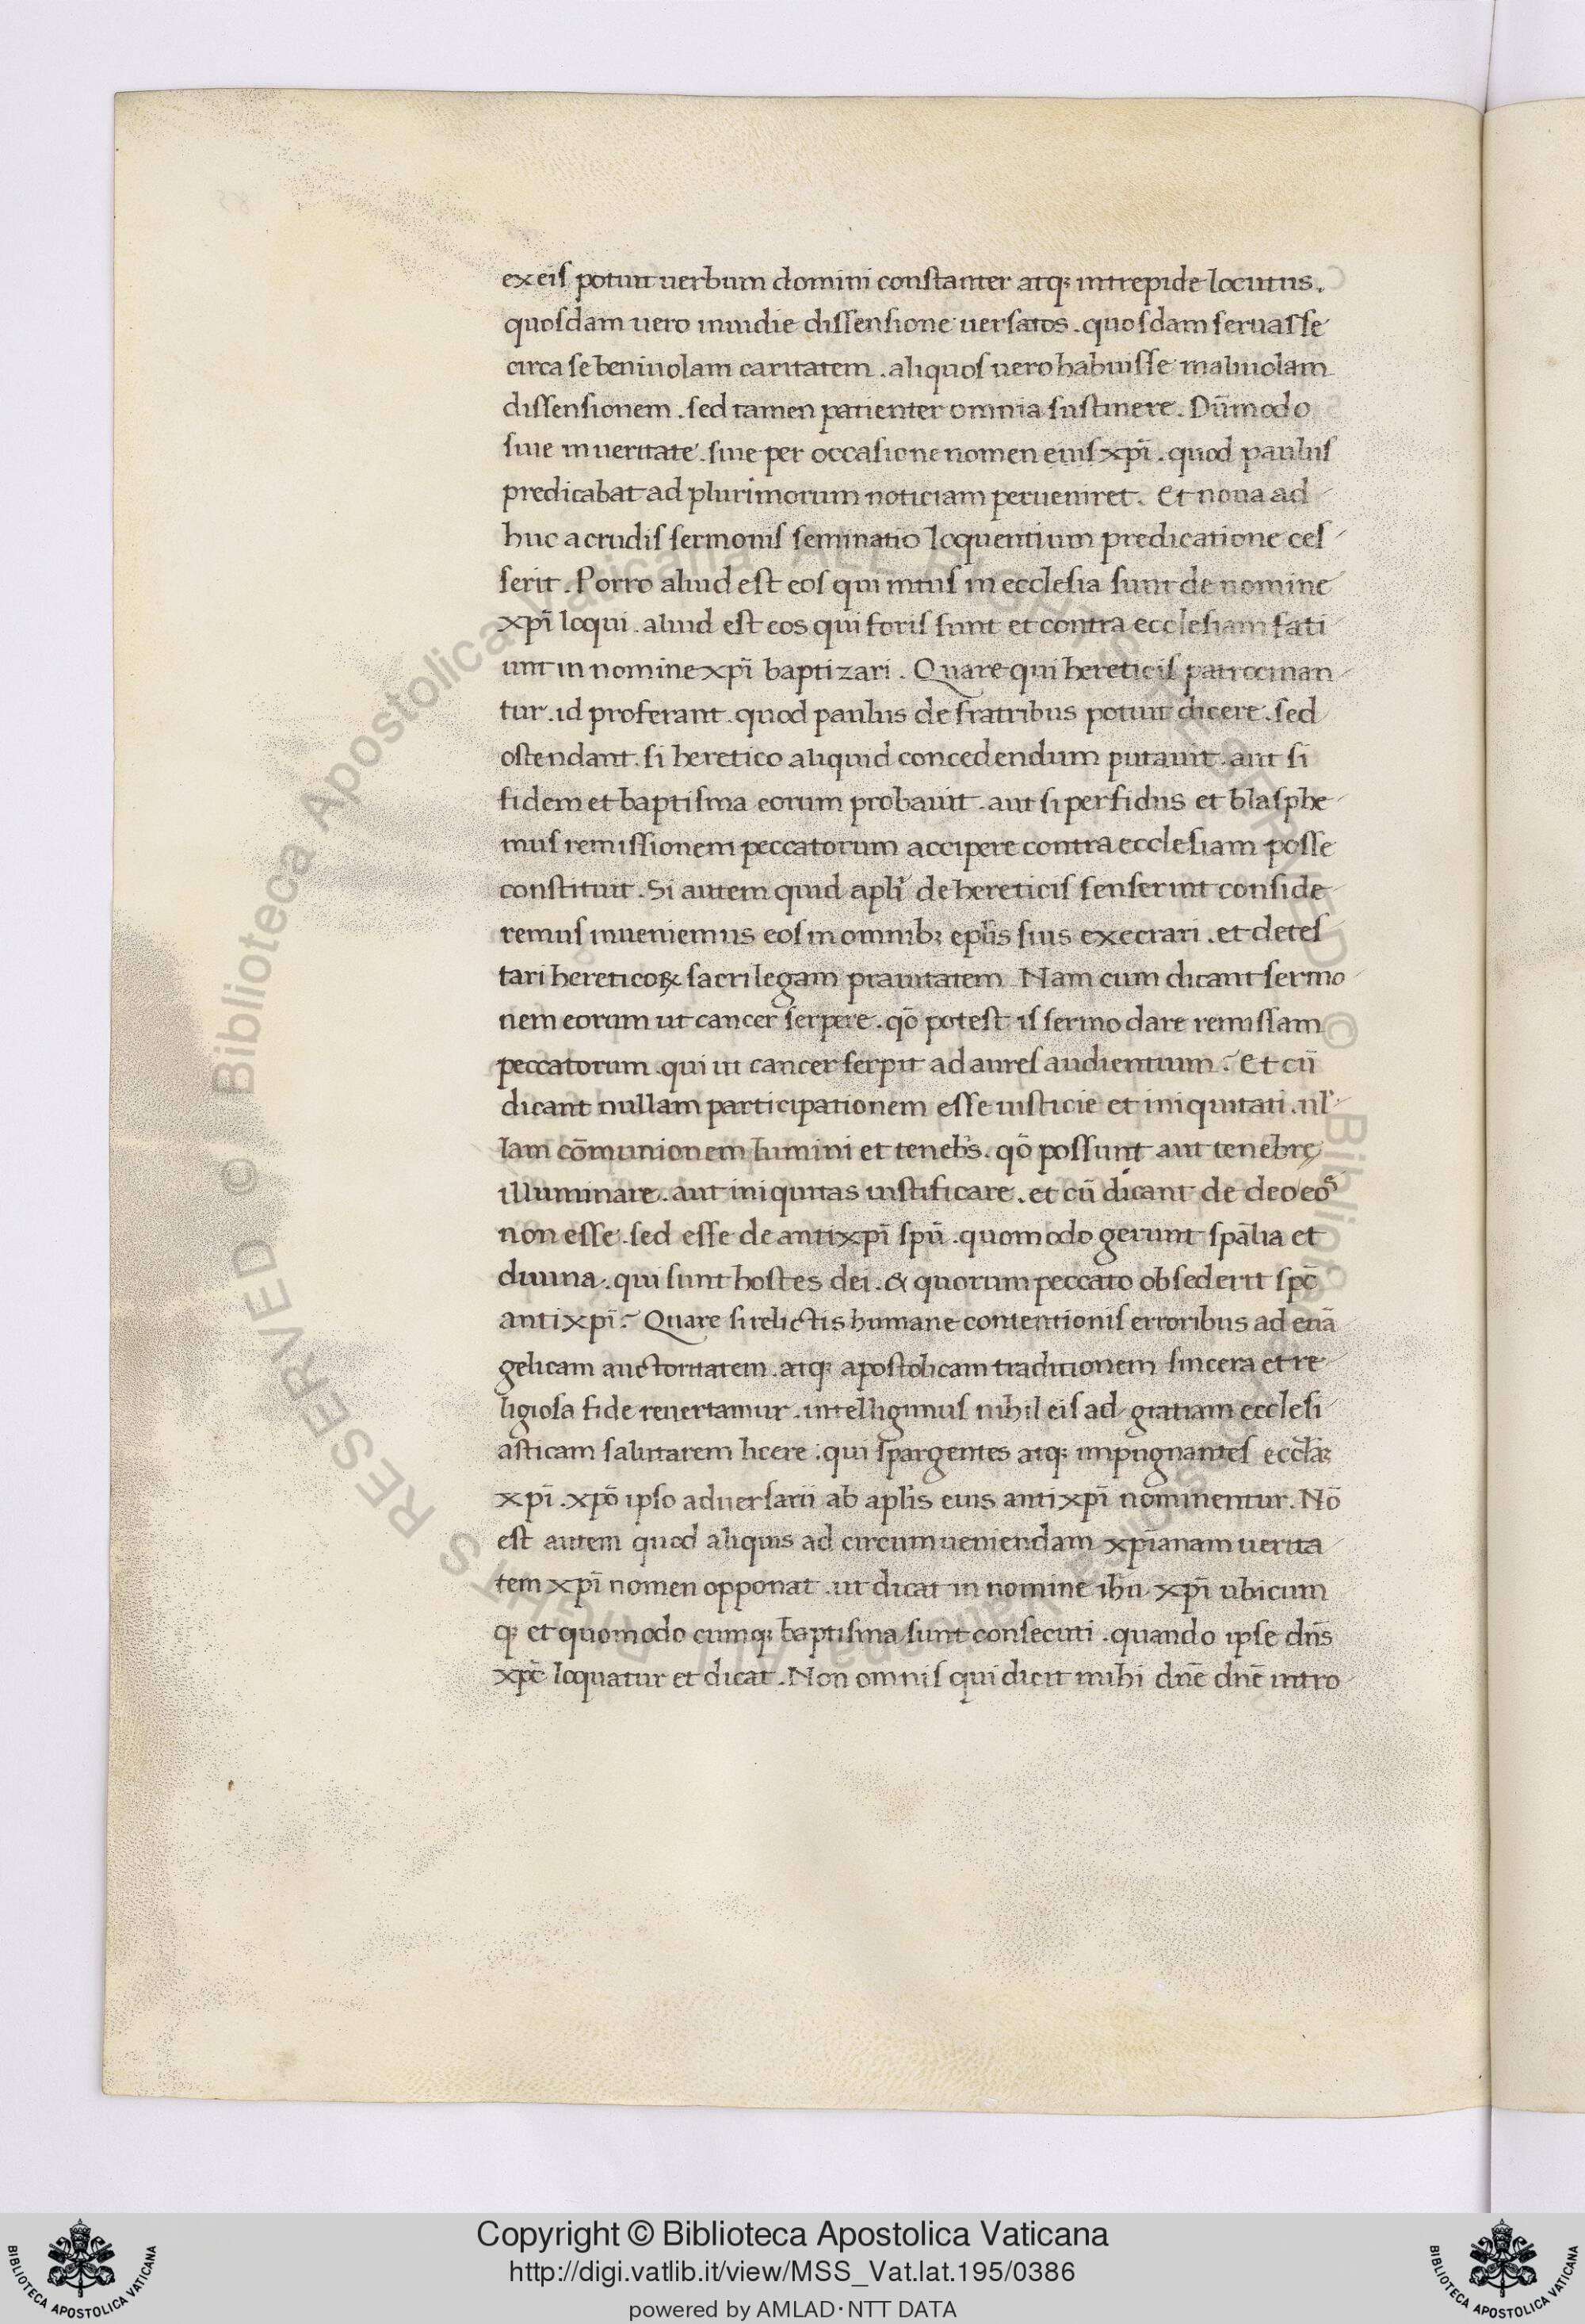 ex eis potuit uerbum domini constanter atq; intrepide locutus.
quosdam uero inuidie dissensione uersatos. quosdam seruasse
circa se beniuolam caritatem. aliquos uero habuisse maliuolam
dissensionem. sed tamen patienter omnia sustinere. Dūmodo
siue in ueritate. siue per occasione nomen eius xpī. quod paulus
predicabat ad plurimorum noticiam perueniret. Et noua ad
huc a crudis sermonis seminatio loquentium predicatione ces
serit. Porro aliud est eos qui intus in ecclesia sunt de nomine
xpī loqui. aliud est eos qui foris sunt et contra ecclesiam fati
unt in nomine xpī baptizari. Quare qui hereticis patrocinan
tur. id proferant. quod paulus de fratribus potuit dicere. sed
ostendant. si heretico aliquid concedendum putauit. aut si
fidem et baptisma eorum probauit. aut si perfidus et blasphe
mus remissionem peccatorum accipere contra ecclesiam posse
constituit. Si autem quid apli̅ de hereticis senserint conside
remus inueniemus eos in omnib; eplis suis execrari. et detes
tari hereticoꝝ sacrilegam prauitatem Nam cum dicant sermo
nem eorum ut cancer serpere. qō potest is sermo dare remissam
peccatorum. qui ut cancer serpit ad aures audientium. Et cū
dicant nullam participationem esse iusticie et iniquitati. ul
lam cōmunionem lumini et tenebs. qō possunt aut tenebrę
illuminare. aut iniquitas iustificare. et cū dicant de deo eos
non esse. sed esse de antixpī spū. quomodo gerunt spālia et
diuina. qui sunt hostes dei. & quorum peccato obsederit spc̄
antixpī. Quare si relictis humane contentionis erroribus ad euā
gelicam auctoritatem. atq; apostolicam traditionem sincera et re
ligiosa fide reuertamur. intelligimus nihil eis ad gratiam ecclesi
asticam salutarem licere. qui spargentes atq; impugnantes eccl̄aȝ
xpī. xpō ipso aduersarii ab aplis eius antixpī nominentur. Nō
est autem quod aliquis ad circumueniendam xpīanam uerita
tem xpī nomen opponat. ut dicat in nomine ihū xpī ubicum
q; et quomodo cumq; baptisma sunt consecuti. quando ipse dn̄s
xpc̄ loquatur et dicat. Non omnis qui dicit mihi dn̄e dn̄e intro
Copyright © Biblioteca Apostolica Vaticana
http://digi.vatlib.it/view/MSS_Vat.lat.195/0386
powered by AMLAD・NTT DATA